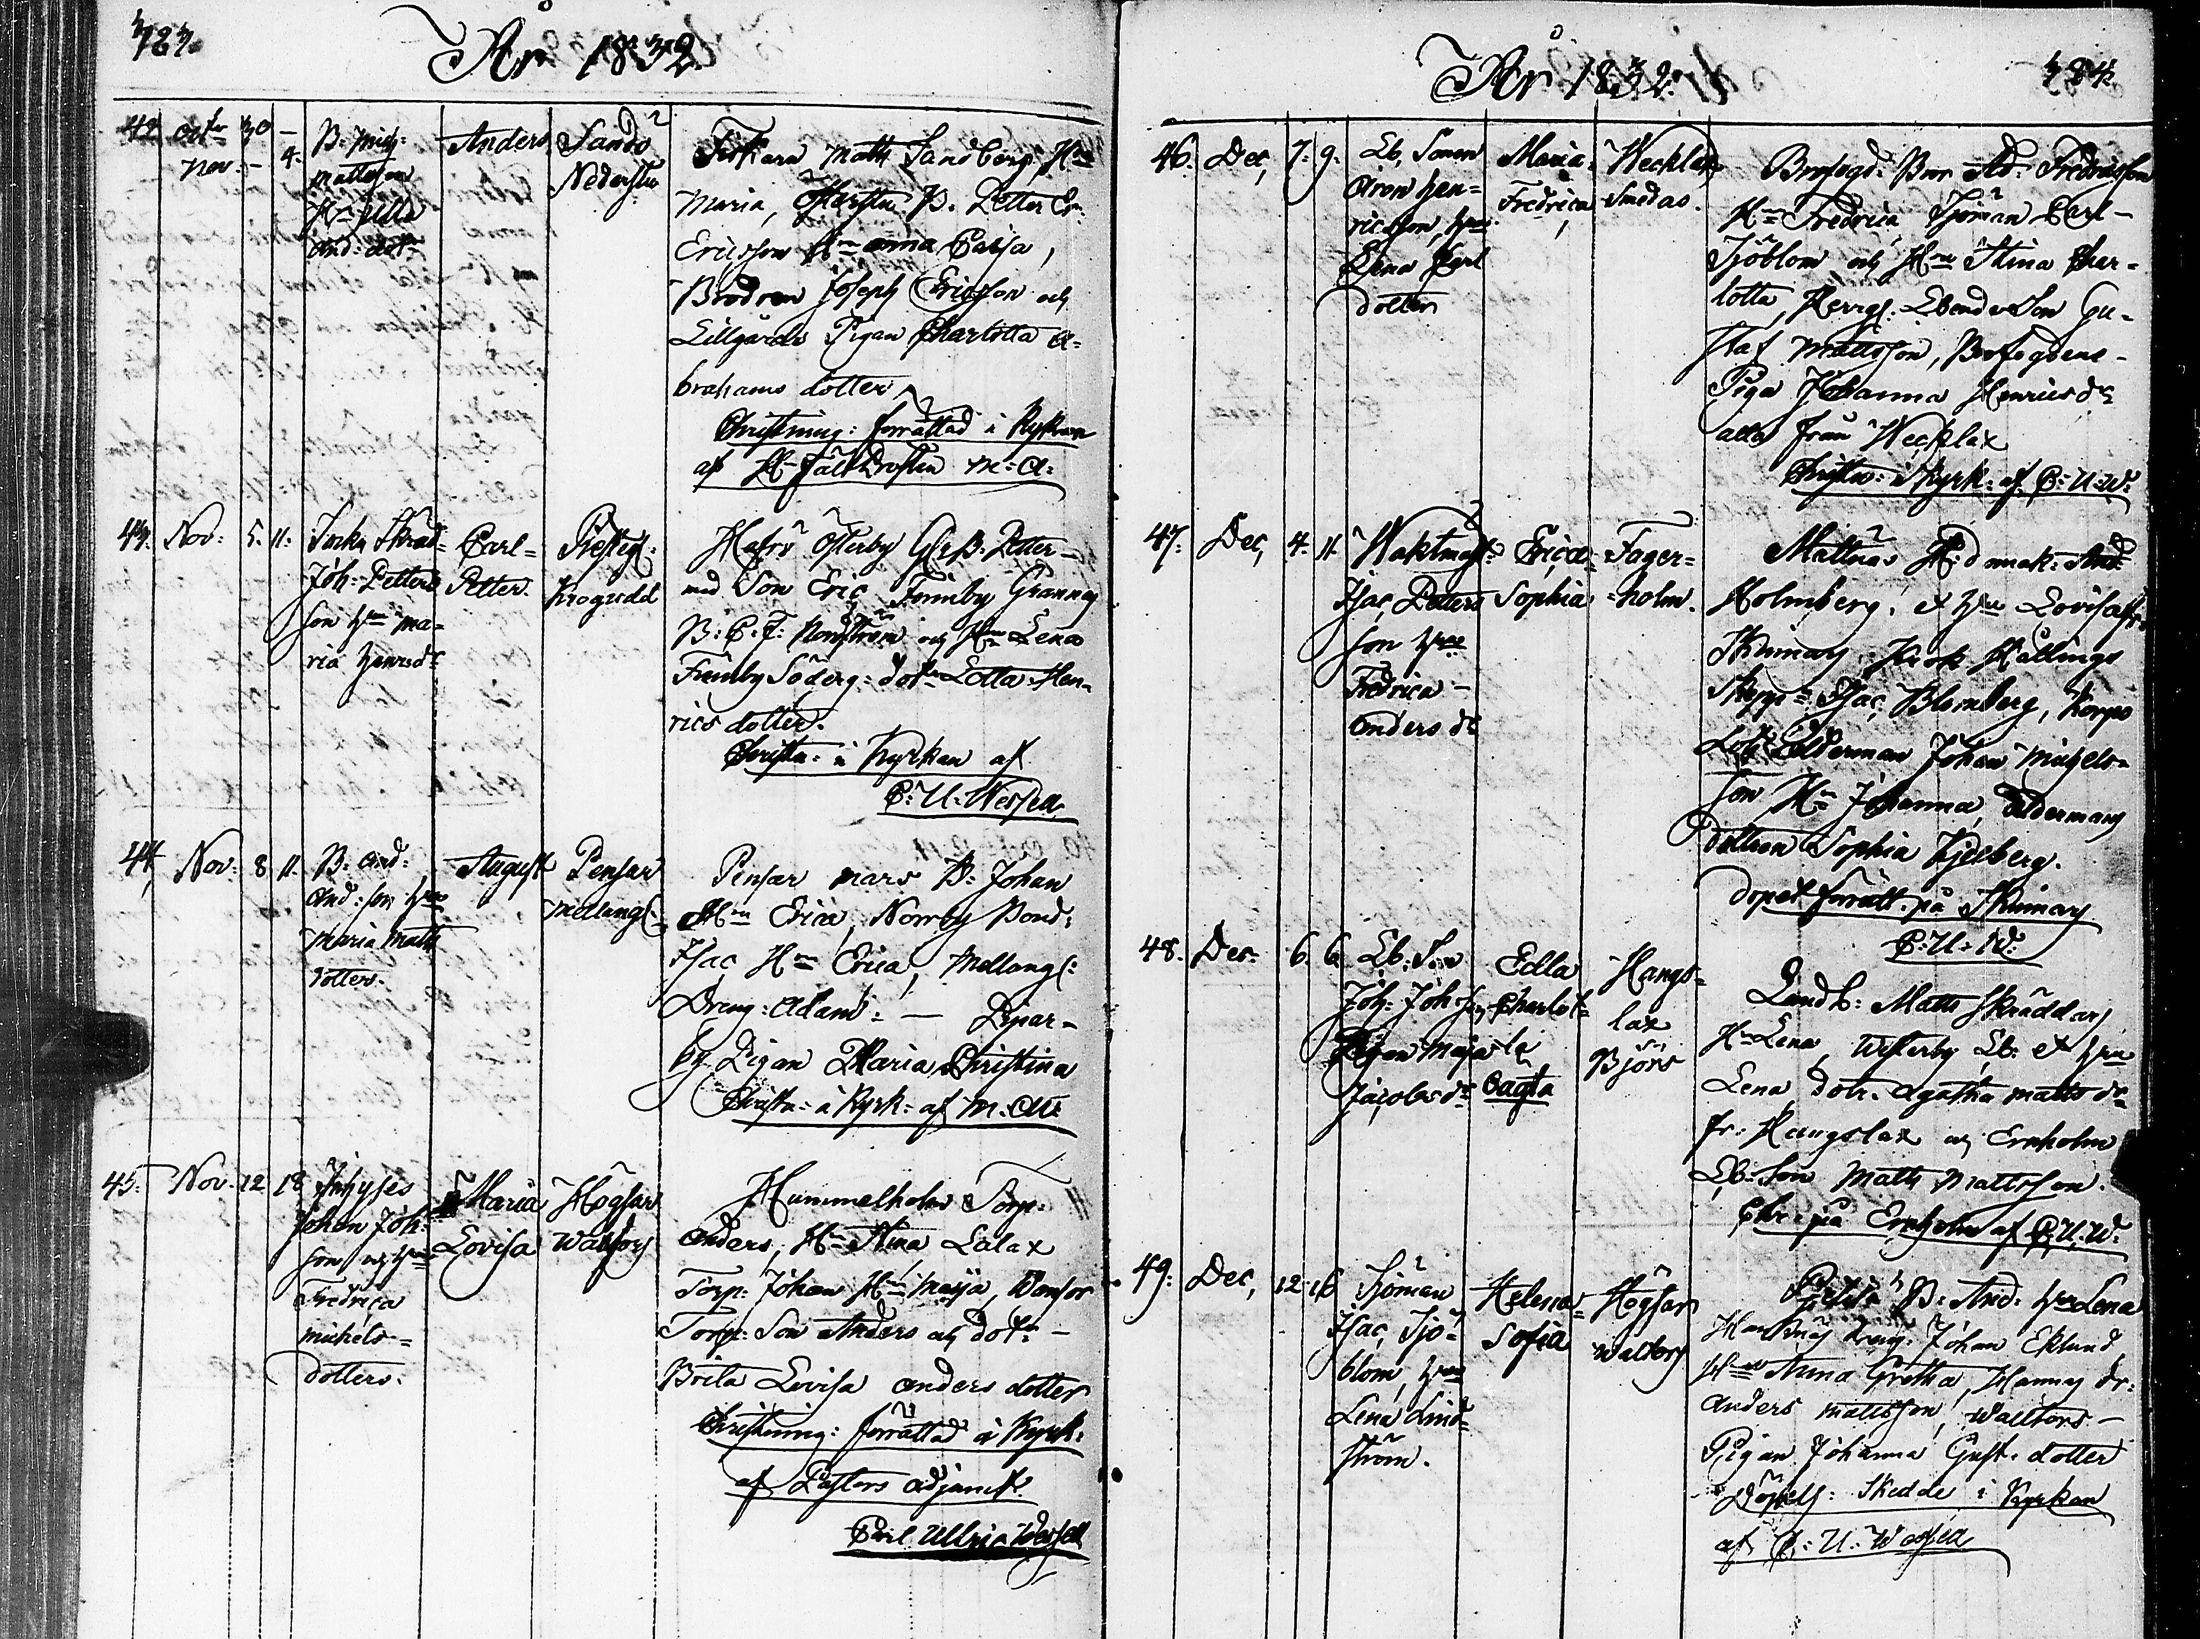 År 1832.
42. Octr 30 –
Nov. – 4.
B: Mich:
Mattsson
Hu Ulla
And: dotr
Anders
Sandö
Nederstu
Fiskarn Matts Sandberg, Hu
Maria, Öfverstu B. Petter Er:
Ericsson Hu Anna Caisa,
Brodren Joseph Ericsson och
Lillgårds Pigan Charlotta A-
brahams dotter
Christning: förrättad i Kyrkan
af H M: A:
43. Nov: 5. 11.
Sockn Skräd-
Joh: Petters
son Hu Ma-
ria Henricdr
Carl-
Petter.
Prestg:
Krogudd
Österby B. Petter
med Son Eric Finnby Granngl
B: C: F: Nordström och Hu Lena
Finnby Söderg: dotr Lotta Hen-
rics dotter.
Christn: i Kyrkan af
C: U: Wessell
44. Nov: 8 11.
B: And:
And: son Hu
Maria Matts
dotter.
August
Pensar
Mellangl:
Pensar mars B: Johan
Hu Erica, Norrby Bond:
Isac Hu Erica, Mellangl:
Dreng: Adam: — Lepar-
by Pigan Maria Christina
Christn: i Kyrk: af M: A:
45. Nov. 12 18
Inhyses
Johan Joh:
son och Hu
Fredrica
Michels-
dotter.
Maria
Lovisa
Högsar
Waltors
Hummelholm Torp.
Anders, Hu Stina Lalax
Torp: Johan Hu Maja, Wansor
Torp: Son Anders och dotr –
Brita Lovisa Anders dotter
Christning: förrättad i Kyrk:
af Pastors Adjunct
Carl Ullric Wessell
År 1832.
46. Dec, 7. 9.
Lb, Sonen
Aron Hen-
ricsson, Hu
Lena Carl
dotter
Maria
Fredrica,
Wecklax
Smedas.
Brofogd: Bror Ad: Fredricsson
Hu Fredrica Sjöman Carl
Sjöblom och Hu Stina Char-
lotta, Herrgl: Lbonde Son Gu-
staf Mattsson, Brofogdens
Piga Johanna Henricsdr
alla från Wecklax
Christn: i Kyrk: af C: U: W:
47. Dec, 4. 11.
Waktmäst:
Isac Petters
son Hu
Fredrica –
Anders dr
Erica
Sophia
Fager-
holm.
Mattnäs And:
Holmberg, et Hu Lovisa fr:
Skinnary Krok Källings
Skepp: Isac Blomberg, Korpo
Lots Ålderman Johan Michels-
son Hu Johanna, Åldermans
dottren Sophia Kjelberg.
Dopet förrätt. på Skinnary
C: U: W:
48. Dec. 6. 6.
Lb: Son
Joh: Johsson
Pigan Maja
Jacobsdr
Edla
Charlot-
ta
Oägta
Hangs-
lax
Björs
Landb: Matts Skräddars
Hu Lena, Westerby Lb: et Hu
Lena dotr. Agatha Mattsdr
fr: Hangslax och Ernholm
Lb: Son Matts Mattsson.
Chr: på Ernholm af C: U: W:
49. Dec, 12. 16
Sjöman
Isac Sjö-
blom, Hu
Lena Lind-
ström.
Helena
Sofia
Högsar
Waltors
B: And: Hu Lena
dreng: Johan Eklund
Hu Anna Gretha, dr:
Anders Mattsson, Waltors –
Pigan Johanna Gust: dotter
Döpels: Skedde i Kyrkan
af C: U: Wessell